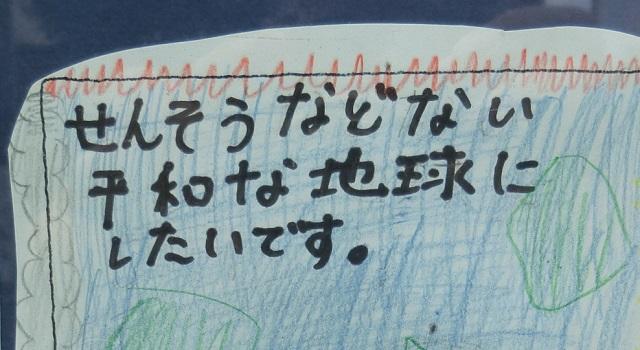 せんそうなどない
平和な地球に
したいです。